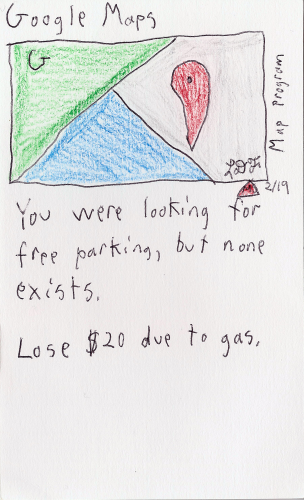 Google Maps
G
Map Program
LDF
2/19
You were looking for
free parking, but none
exists.
Lose $20 due to gas.